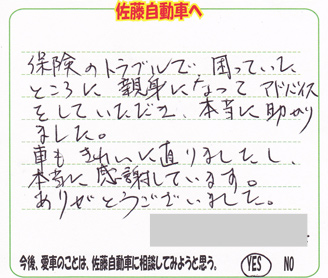 佐藤自動車へ
保険のトラブルで困っていた
ところに親身になってアドバイス
をしていただき、本当に助かり
ました。
車もきれいに直りましたし、
本当に感謝しています。
ありがとうございました。
今後、愛車のことは、佐藤自動車に相談してみようと思う。 YES NO